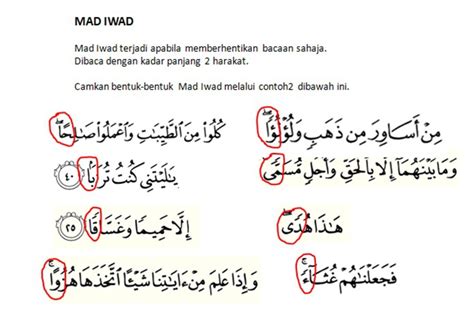 MAD IWAD
Mad Iwad terjadi apabila memberhentikan bacaan sahaja.
Dibaca dengan kadar panjang 2 harakat.
Camkan bentuk-bentuk Mad Iwad melalui contoh2 dibawah ini.
مِنْ أَسَاوِرَ مِن ذَهَبٍ وَلُؤْلُؤًا ۖ
كُلُوا۟ مِنَ ٱلطَّيِّبَٰتِ وَٱعْمَلُوا۟ صَٰلِحًا ۖ
وَمَا بَيْنَهُمَآ إِلَّا بِٱلْحَقِّ وَأَجَلٍ مُّسَمًّى
يَٰلَيْتَنِى كُنتُ تُرَٰبًۢا ٤٠
هَٰذَا هُدًى ۖ
إِلَّا حَمِيمًا وَغَسَّاقًا ٢٥
فَجَعَلْنَٰهُمْ غُثَآءً ۚ
وَإِذَا عَلِمَ مِنْ ءَايَٰتِنَا شَيْـًٔا ٱتَّخَذَهَا هُزُوًا ۚ